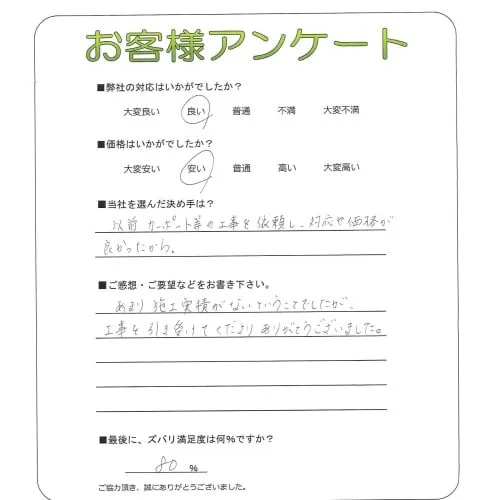 お客様アンケート
■弊社の対応はいかがでしたか？
大変良い 良い 普通 不満 大変不満
■価格はいかがでしたか？
大変安い 安い 普通 高い 大変高い
■当社を選んだ決め手は？
以前カーポート等の工事を依頼し、対応や価格が
良かったから。
■ご感想・ご要望などをお書き下さい。
あまり施工実績がないということでしたが、
工事を引き受けてくださりありがとうございました。
■最後に、ズバリ満足度は何％ですか？
80 ％
ご協力頂き、誠にありがとうございました。